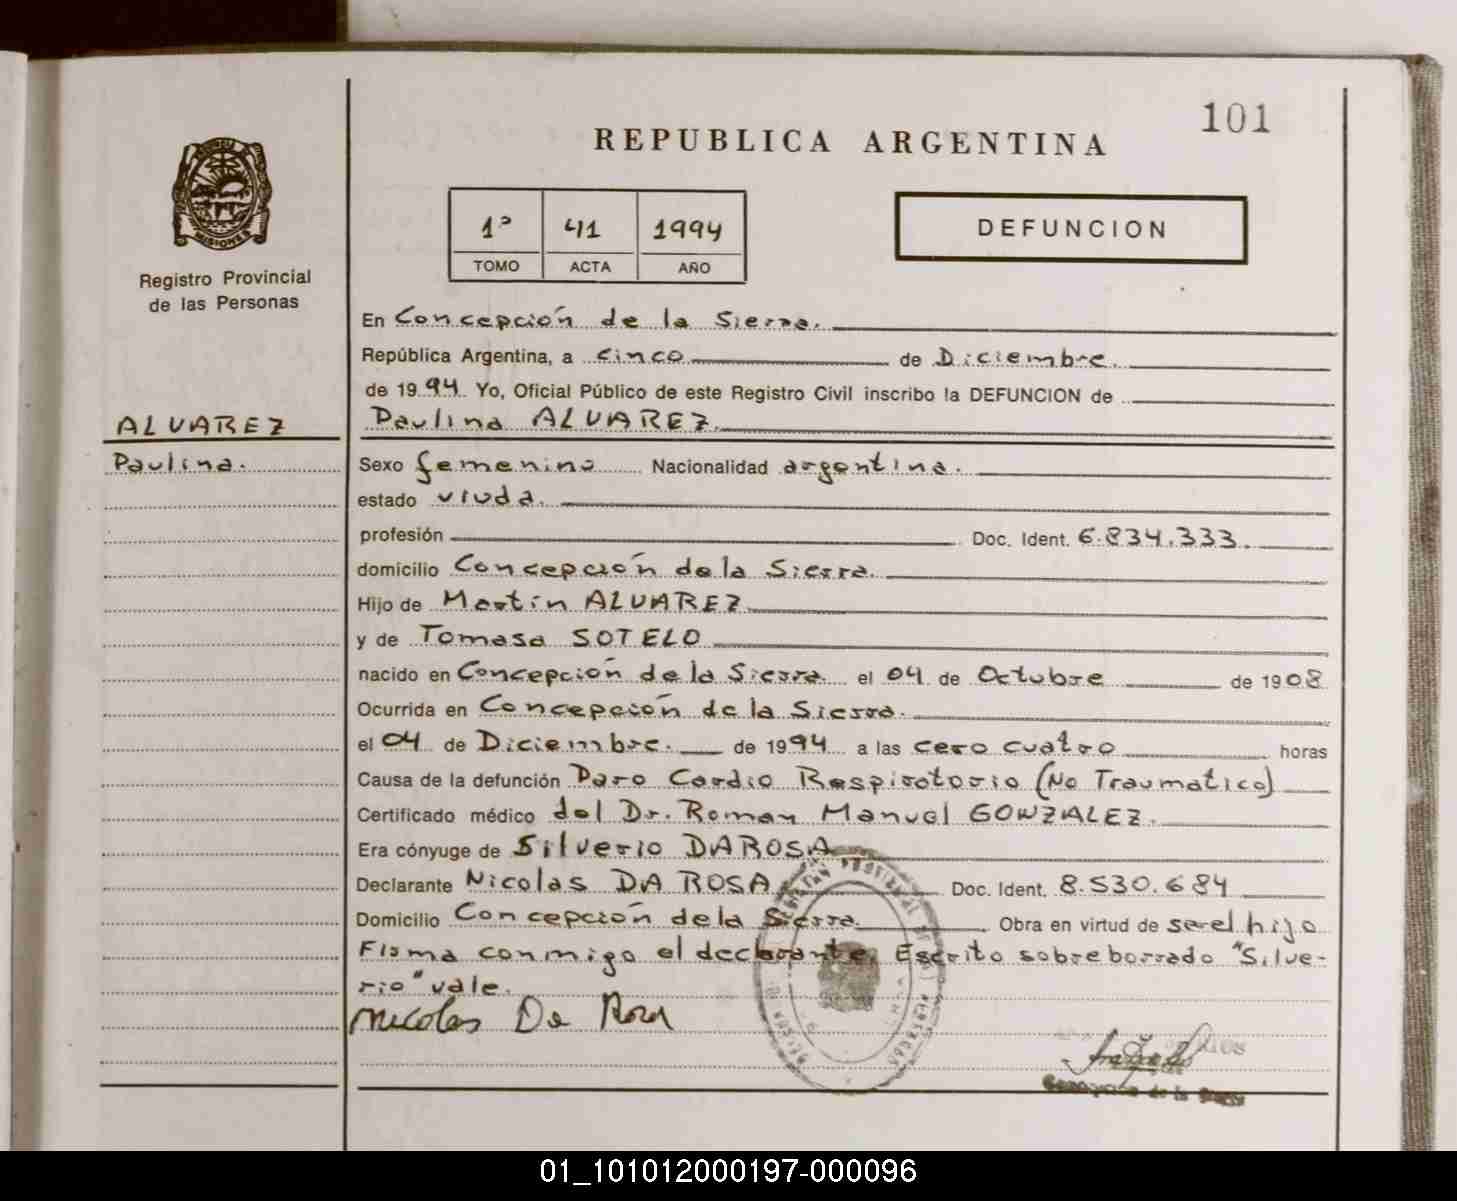 101
REPUBLICA ARGENTINA
MISIONES
1º 411 1994
TOMO ACTA AÑO
DEFUNCION
Registro Provincial
de las Personas
En Concepción de la Sierra.
República Argentina, a cinco de Diciembre.
de 1994. Yo, Oficial Público de este Registro Civil inscribo la DEFUNCION de
ALVAREZ
Paulina.
Paulina ALVAREZ.
Sexo femenino Nacionalidad argentina.
estado viuda.
profesión Doc. Ident. 6.834.333.
domicilio Concepción de la Sierra.
Hijo de Martín ALVAREZ
y de Tomasa SOTELO
nacido en Concepción de la Sierra el 04 de Octubre de 1908
Ocurrida en Concepción de la Sierra.
el 04 de Diciembre. de 1994 a las cero cuatro horas
Causa de la defunción Paro Cardio Respiratorio (No Traumatico)
Certificado médico del Dr. Roman Manuel GONZALEZ.
Era cónyuge de Silverio DAROSA
Declarante Nicolas DA ROSA. Doc. Ident. 8.530.684
Domicilio Concepción de la Sierra. Obra en virtud de ser el hijo
Firma conmigo el declarante. Escrito sobreborrado "Silve-
rio" vale.
Nicolas Da Rosa
Concepción de la Sierra
01_101012000197-000096